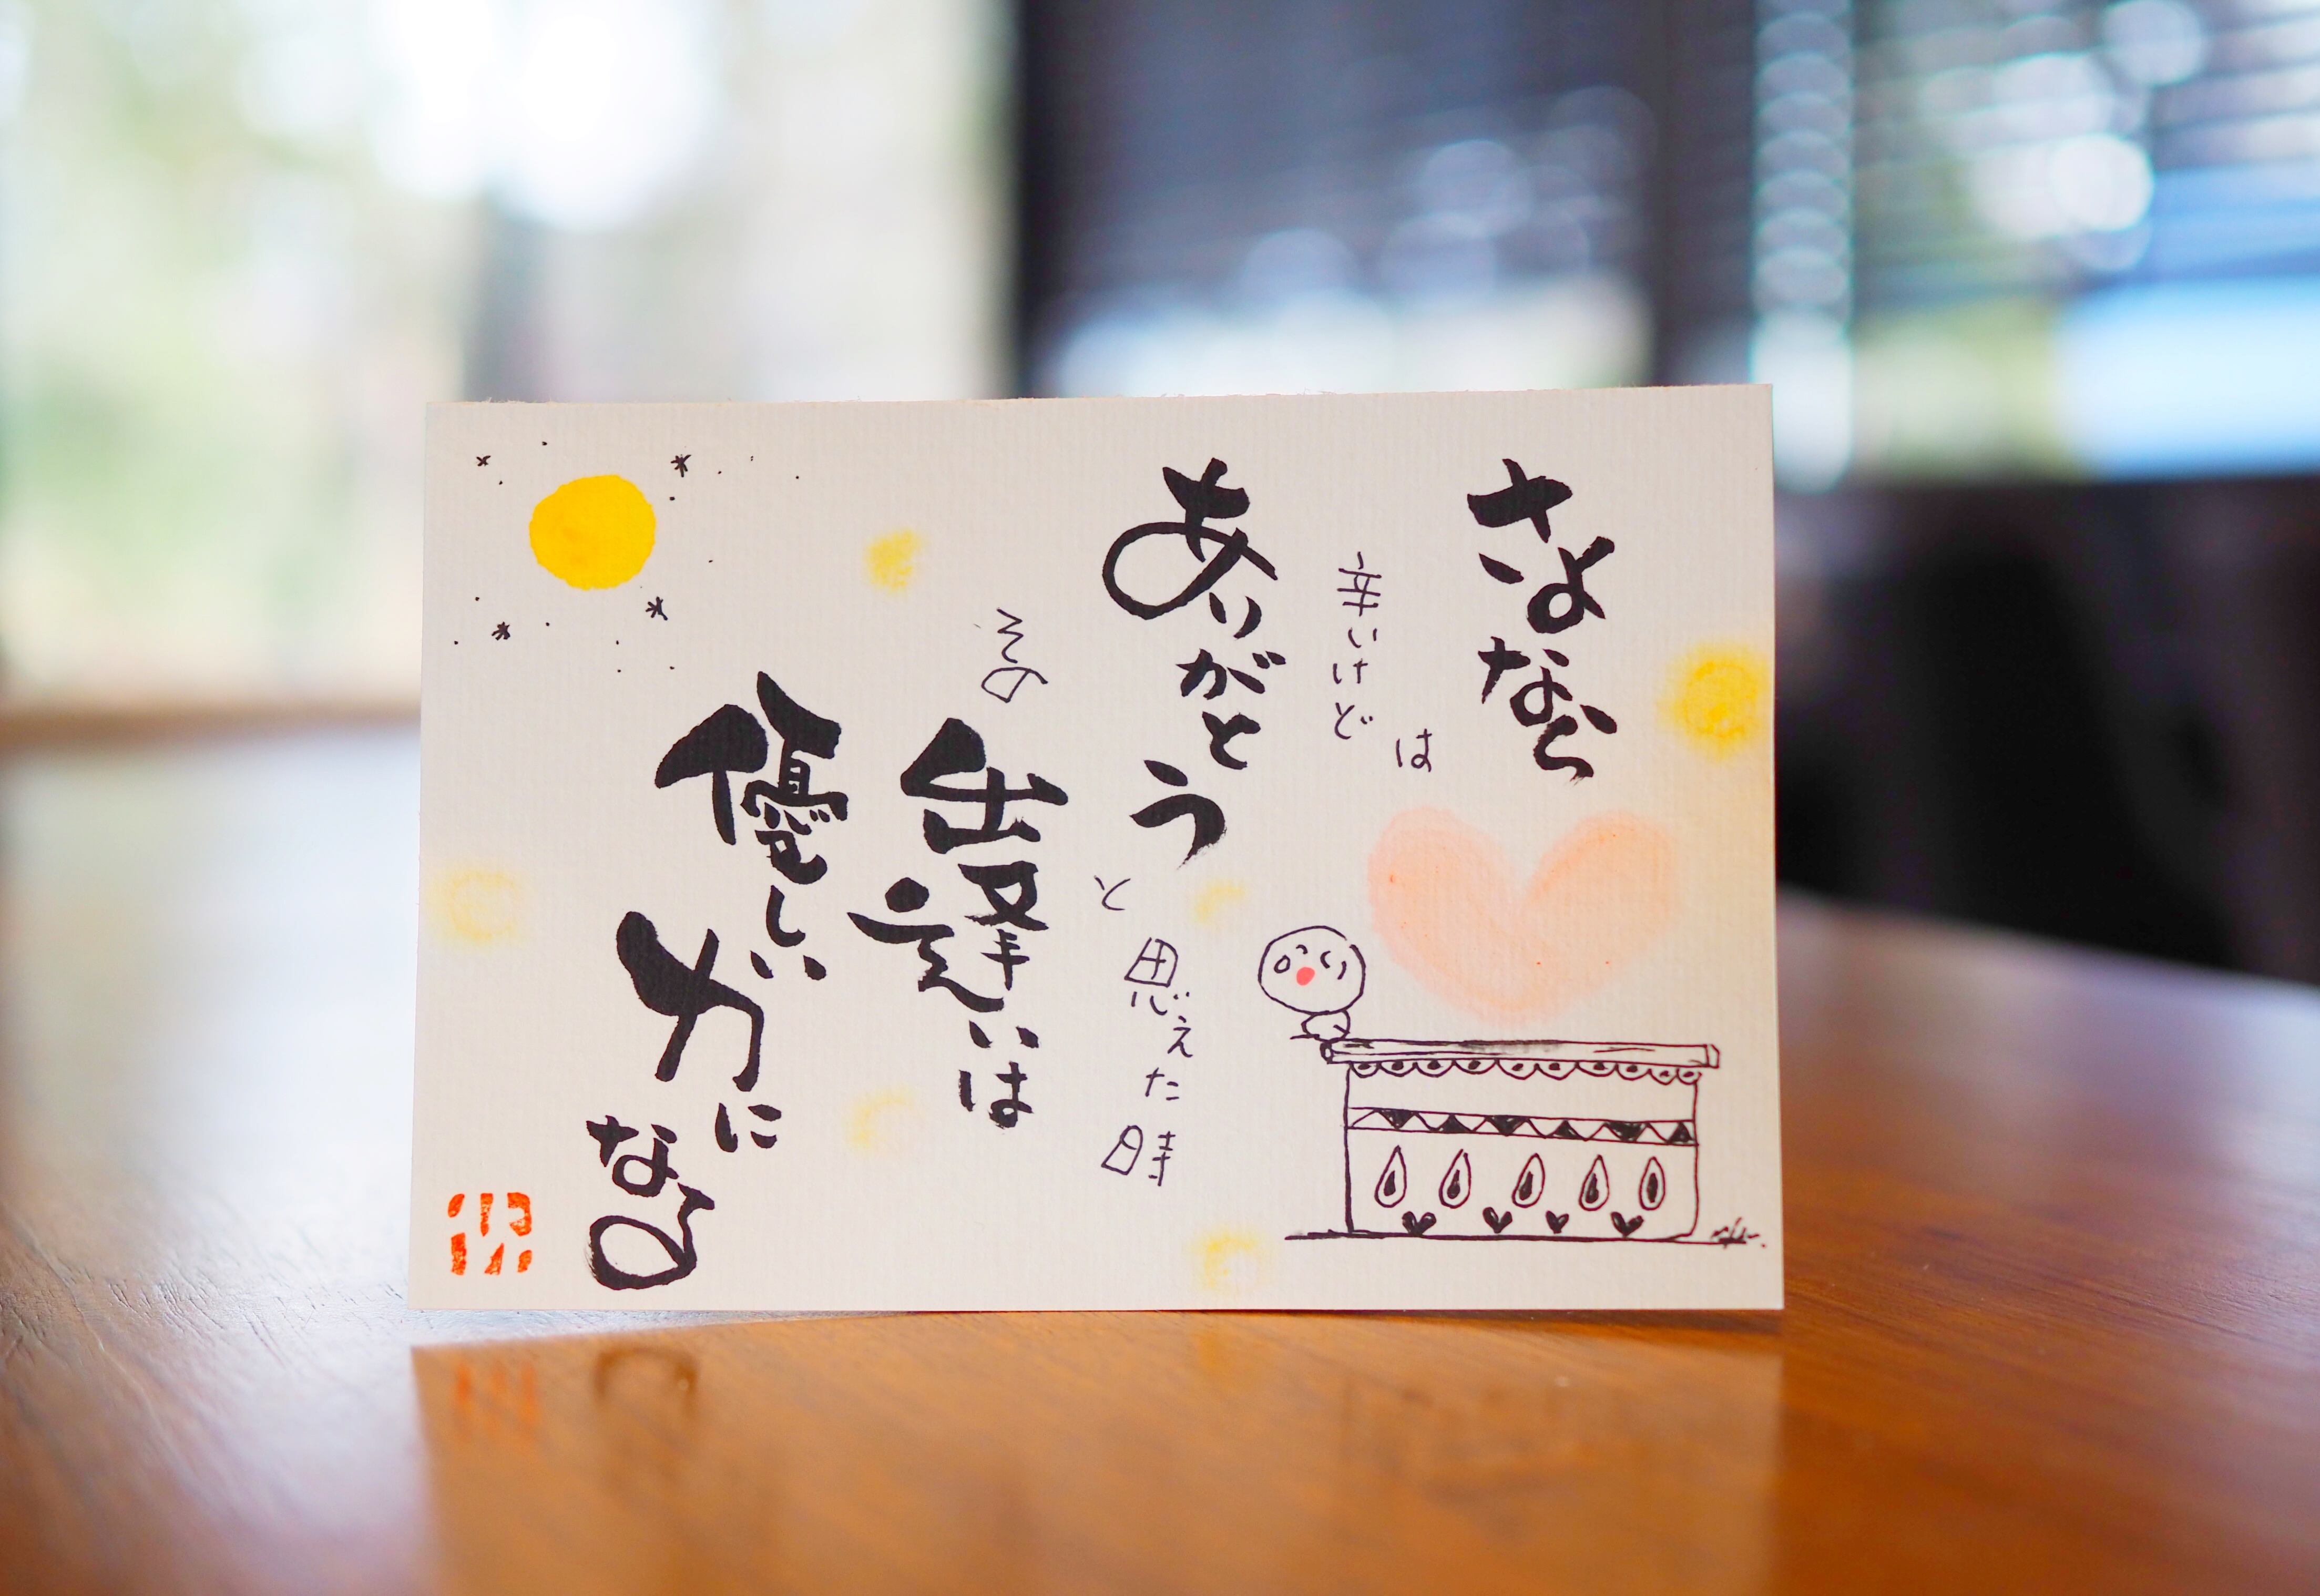 さよならは
辛いけど
ありがとう
と思えた時
その
出逢いは
優しい
力に
なる